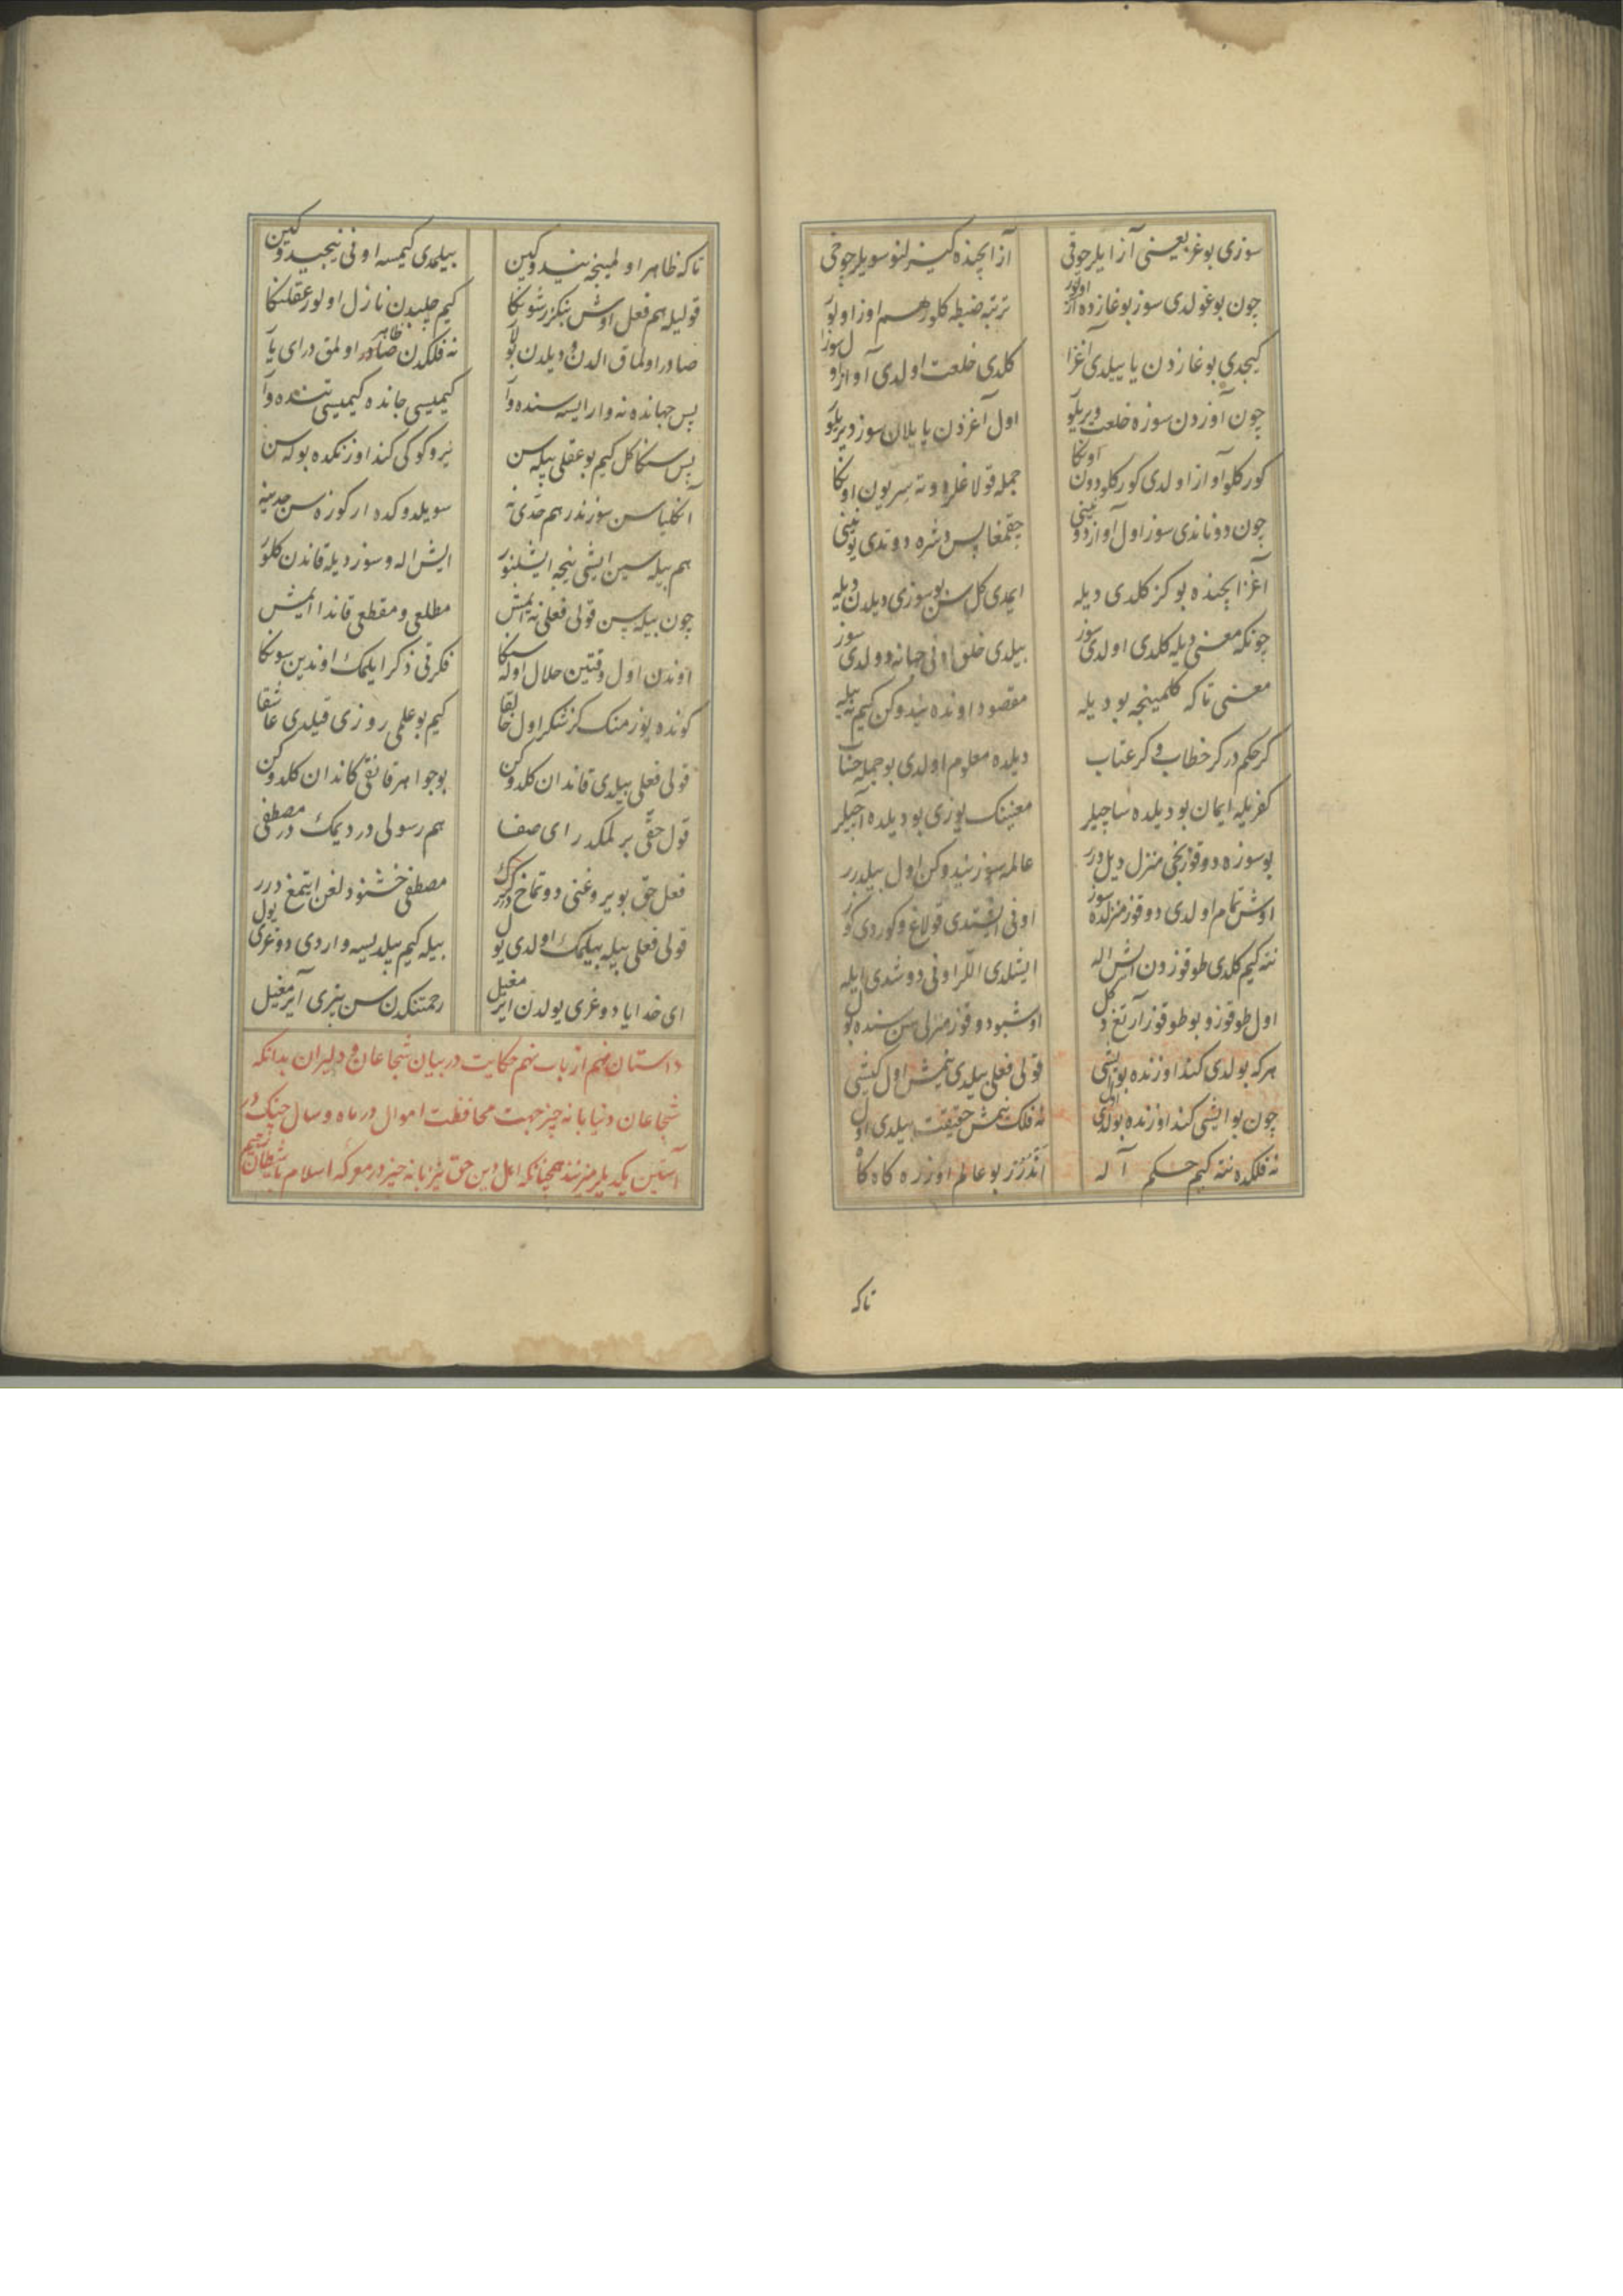 سوزی بوغر یعنی آز ایلر چوقی آز ایچنده کیزلنو سویلر چوخی
چون بوغولدی سوز بوغازده از اولور ترتبه ضبطه کلور هم اوز اولور
کیجدی بوغازدن یا ییلدی آغزا کلدی خلعت اولدی آواز اول سوزا
چون آوزدن سوزه خلعت ویریلو اول آغزدن یا یلان سوز دیریلو
کورکلو آواز اولدی کورکلو دون اونکا جمله قولاغلر دوته سر یون اونکا
چون دوناندی سوز اول آواز دونینی چقمغا پس دشره دوتدی یونینی
آغز ایچنده بو کز کلدی دیله ایمدی کل سن بو سوزی دیلدن دیله
چونکه معنی دیله کلدی اولدی سوز بیلدی خلق انی جهانه دولدی سوز
معنی تا که کلمینجه بو دیله مقصود اونده نیدوکن کیم نه بیله
کر حکم در کر خطاب و کر عتاب دیلده معلوم اولدی بو جمله حساب
کفریله ایمان بو دیلده ساچیلر معنینک یوزی بو دیلده آچیلر
بو سوزه دوقوزنجی منزل دیل درر عالمه سوز نیدوکن اول بیلدرر
اوش تمام اولدی دوقوز منزلده سوز اونی ایشتدی قولاغ و کوردی کوز
نته کیم کلدی طوقوزدن ایش اله ایشلدی اللر اونی دوشدی ایله
اول طوقوز و بو طوقوز آرتغ دکل اوشبو دوقوز منزلی سن سنده بول
هر که بولدی کند اوزنده بو ایشی قولی فعلی بیلدی نمش اول کیشی
چون بو ایشی کند اوزنده بولدی اول نه فلک نمش حقیقت بیلدی اول
نه فلکده نته کیم حکم آله آندرر بو عالم اوزره کاه کاه
تاکه
تا که ظاهر اولمینجه نیدوکین بیلمدی کیمسه اونی نیجیدوکین
قولیله هم فعل اوش بنکزر شونکا کیم چلبدن نازل اولور عقلنکا
صادر اولماق الدن و دیلدن بولار نه فلکدن ظاهر اولمق در ای یار
پس جهانده نه وار ایسه سنده وار کیمیسی جانده کیمیسی تنده وار
پس سنکا کل کیم بو عقلی بیله سن نیر و کوکی کند اوزنکده بوله سن
آنکلیاسن سوز نذر هم حدی نه سویلدوکده ار کوزه سن حدینه
هم بیله سین ایشی نیجه ایشلنور ایش اله و سوز دیله قاندن کلور
چون بیله سن قولی فعلی نه ایمش مطلعی و مقطعی قاندا ایمش
اوندن اول وقتین حلال اوله سنکا فکرتی ذکر ایلمک اوندین سونکا
کونده یوز منک کز شکر اول خالقا کیم بو علمی روزی قیلدی عاشقا
قولی فعلی بیلدی قاندان کلدوکن بو جواهر قانقی کاندان کلدوکن
قول حقی برلمکدر ای صفا هم رسولی در دیمک در مصطفی
فعل حق بویروغنی دوتماخ کرک مصطفی خشنودلغن ایتمغ درر
قولی فعلی بیله بیلمک اولدی یول بیله کیم بیلدیسه واردی دوغری یول
ای خدایا دوغری یولدن ایرمغیل رحمتنکدن سن بیزی آیرمغیل
داستان نهم از باب نهم حکایت در بیان شجاعان و دلیران بدانکه
شجاعان دنیا بانه چیز جهت محافظت اموال در ماه و سال جنک در
آستین یکدیلر منزنند همچنانکه اهل دین حق نیز بانه چیز در معرکه اسلام باشیطان رجیم